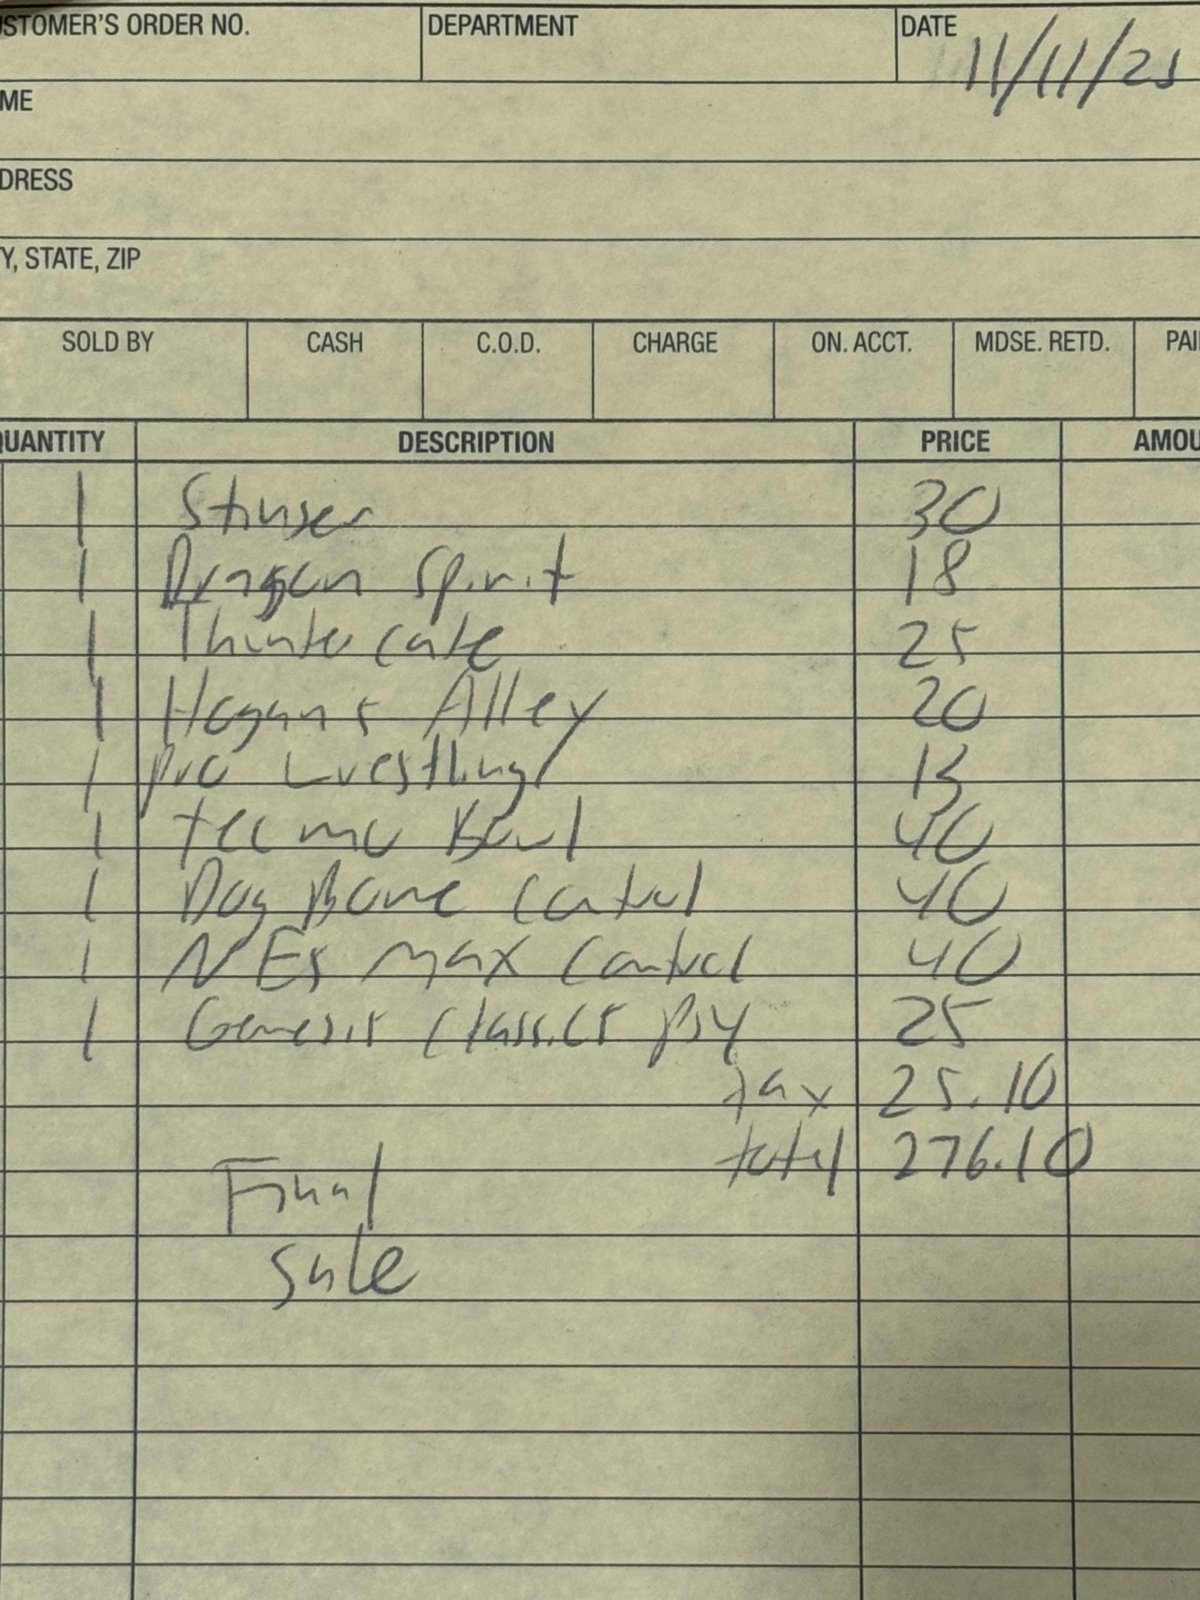 USTOMER'S ORDER NO. DEPARTMENT DATE 11/11/25
ME
DRESS
Y, STATE, ZIP
SOLD BY CASH C.O.D. CHARGE ON. ACCT. MDSE. RETD. PAI
QUANTITY DESCRIPTION PRICE AMOU
1 Stinger 30
1 Dragon Spirit 18
1 Thundercade 25
1 Hogans Alley 20
1 Pro Wrestling 13
1 tecmo Bowl 40
1 Dog Bone Control 40
1 NES Max Control 40
1 Genesis Classics PSY 25
tax 25.10
total 276.10
Final
Sale